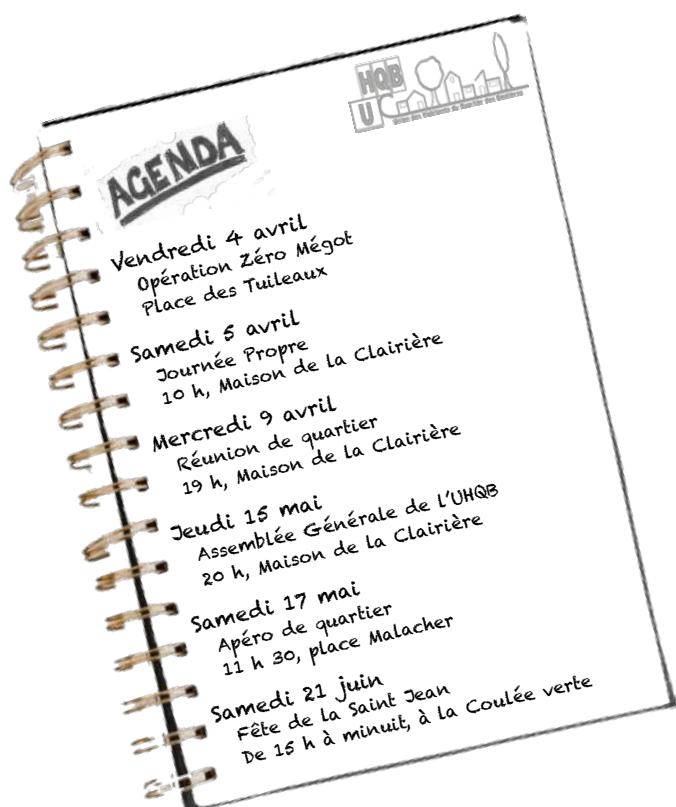 HQB
U
Union des Habitants du Quartier des Bruyères
AGENDA
Vendredi 4 avril
Opération Zéro Mégot
Place des Tuileaux
Samedi 5 avril
Journée Propre
10 h, Maison de la Clairière
Mercredi 9 avril
Réunion de quartier
19 h, Maison de la Clairière
Jeudi 15 mai
Assemblée Générale de l'UHQB
20 h, Maison de la Clairière
Samedi 17 mai
Apéro de quartier
11 h 30, place Malacher
Samedi 21 juin
Fête de la Saint Jean
De 15 h à minuit, à la Coulée verte